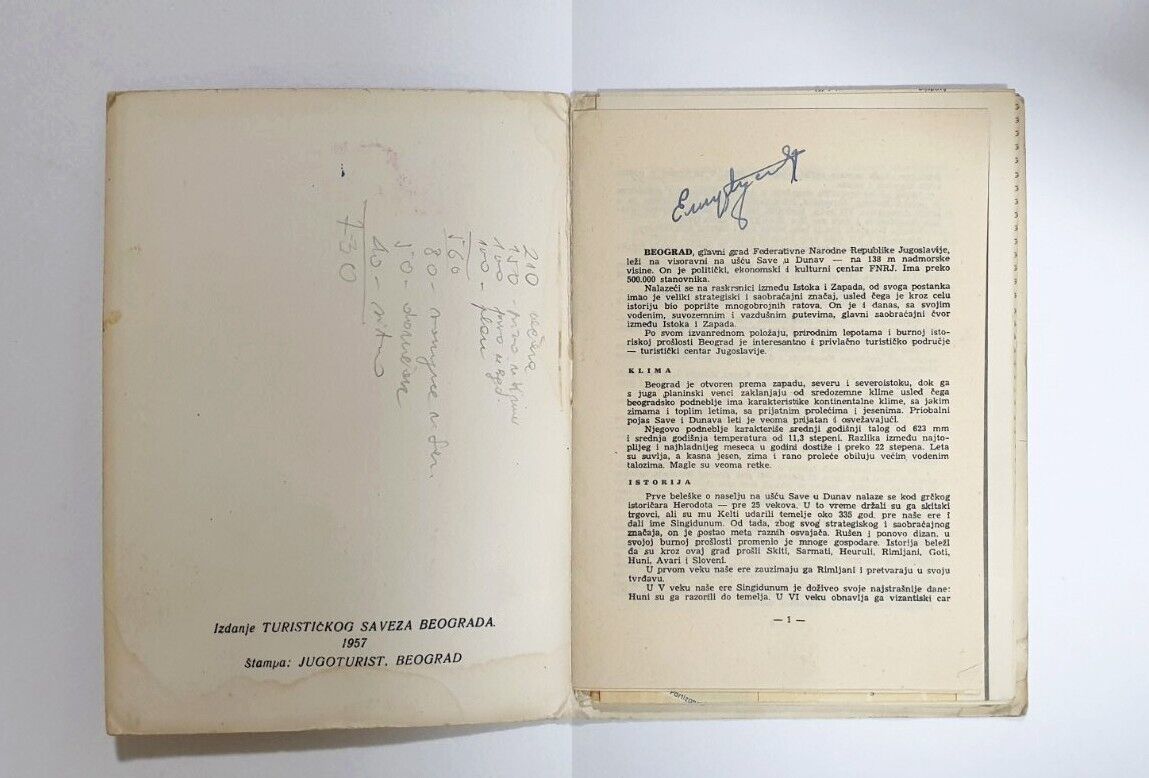 210 večera
150 -
100 -
100 -
560
80 -
50 -
40 -
730
Izdanje TURISTIČKOG SAVEZA BEOGRADA.
1957
Štampa: JUGOTURIST, BEOGRAD
BEOGRAD, glavni grad Federativne Narodne Republike Jugoslavije,
leži na visoravni na ušću Save u Dunav — na 138 m nadmorske
visine. On je politički, ekonomski i kulturni centar FNRJ. Ima preko
500.000 stanovnika.
Nalazeći se na raskrsnici između Istoka i Zapada, od svoga postanka
imao je veliki strategiski i saobraćajni značaj, usled čega je kroz celu
istoriju bio poprište mnogobrojnih ratova. On je i danas, sa svojim
vodenim, suvozemnim i vazdušnim putevima, glavni saobraćajni čvor
između Istoka i Zapada.
Po svom izvanrednom položaju, prirodnim lepotama i burnoj isto-
riskoj prošlosti Beograd je interesantno i privlačno turističko područje
— turistički centar Jugoslavije.
KLIMA
Beograd je otvoren prema zapadu, severu i severoistoku, dok ga
s juga planinski venci zaklanjaju od sredozemne klime usled čega
beogradsko podneblje ima karakteristike kontinentalne klime, sa jakim
zimama i toplim letima, sa prijatnim prolećima i jesenima. Priobalni
pojas Save i Dunava leti je veoma prijatan i osvežavajući.
Njegovo podneblje karakteriše srednji godišnji talog od 623 mm
i srednja godišnja temperatura od 11,3 stepeni. Razlika između najto-
plijeg i najhladnijeg meseca u godini dostiže i preko 22 stepena. Leta
su suvlja, a kasna jesen, zima i rano proleće obiluju većim vodenim
talozima. Magle su veoma retke.
ISTORIJA
Prve beleške o naselju na ušću Save u Dunav nalaze se kod grčkog
istoričara Herodota — pre 25 vekova. U to vreme držali su ga skitaki
trgovci, ali su mu Kelti udarili temelje oko 335 god. pre naše ere i
dali ime Singidunum. Od tada, zbog svog strategiskog i saobraćajnog
značaja, on je postao meta raznih osvajača. Rušen i ponovo dizan, u
svojoj burnoj prošlosti promenio je mnoge gospodare. Istorija beleži
da su kroz ovaj grad prošli Skiti, Sarmati, Heuruli, Rimljani, Goti,
Huni, Avari i Sloveni.
U prvom veku naše ere zauzimaju ga Rimljani i pretvaraju u svoju
tvrđavu.
U V veku naše ere Singidunum je doživeo svoje najstrašnije dane:
Huni su ga razorili do temelja. U VI veku obnavlja ga vizantiski car
— 1 —